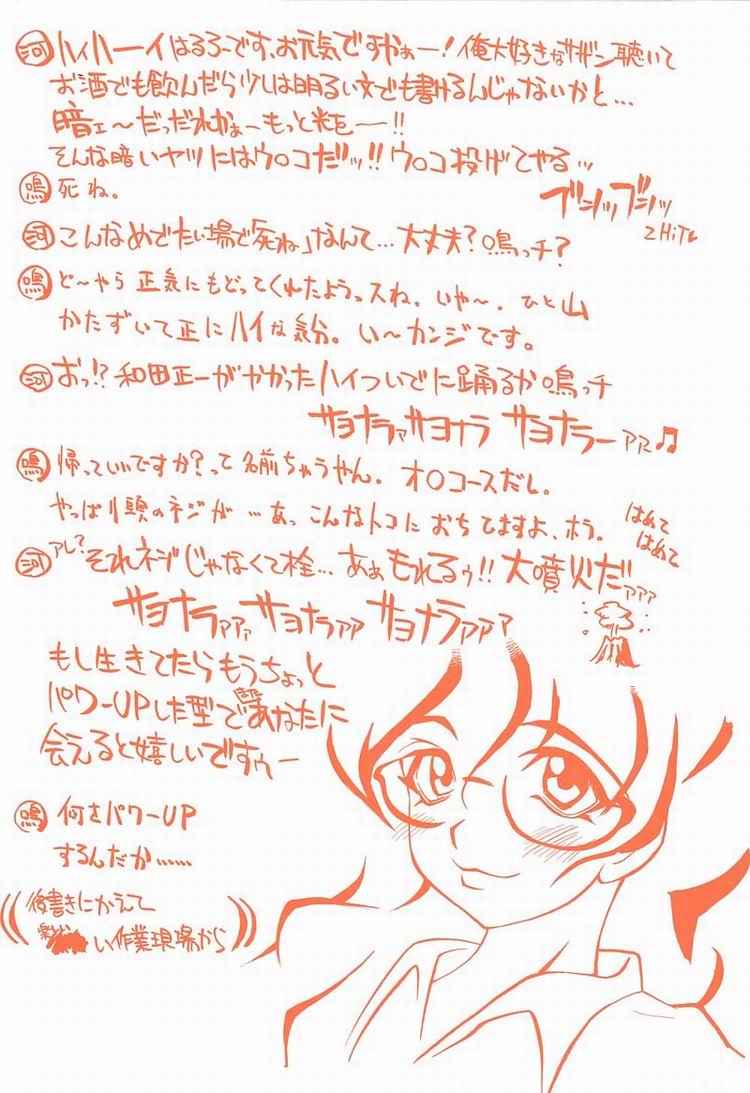 河 ハイハーイはるろーです、お元気ですかぁー!俺大好きなサザン聴いて
お酒でも飲んだら少しは明るい文でも書けるんじゃないかと…
暗ェ〜だっだれかぁーもっと光をー!!
そんな暗いヤツにはウ○コだッ!!ウ○コ投げてやる…
ブシッブシッ
2HIT♥
鳴 死ね。
河 こんなめでたい場で死ね」なんて…大丈夫?鳴っチ?
鳴 ど〜やら正気にもどってくれたようっスね。いや〜。ひと山
かたずいて正にハイな気分。い〜カンジです。
河 おっ!?和田正一がやかったハイついでに踊るか鳴っチ
サヨナラァサヨナラ サヨナラーァァ♫
鳴 帰っていいですか?って名前ちゃうやん。オ○コースだし。
やっぱり頭のネジが…あっこんなトコにおちてますよ、ホラ。
はめて
はめて
河 アレ?それネジじゃなくて栓…あぁもれるぅ!!大噴火だァァァ
サヨナラァァァサヨナラァァァサヨナラァァァ
もし生きてたらもうちょっと
パワーUPした型であなたに
会えると嬉しいですぅー
鳴 何をパワーUP
するんだか……
((後書きにかえて
い作業現場から))